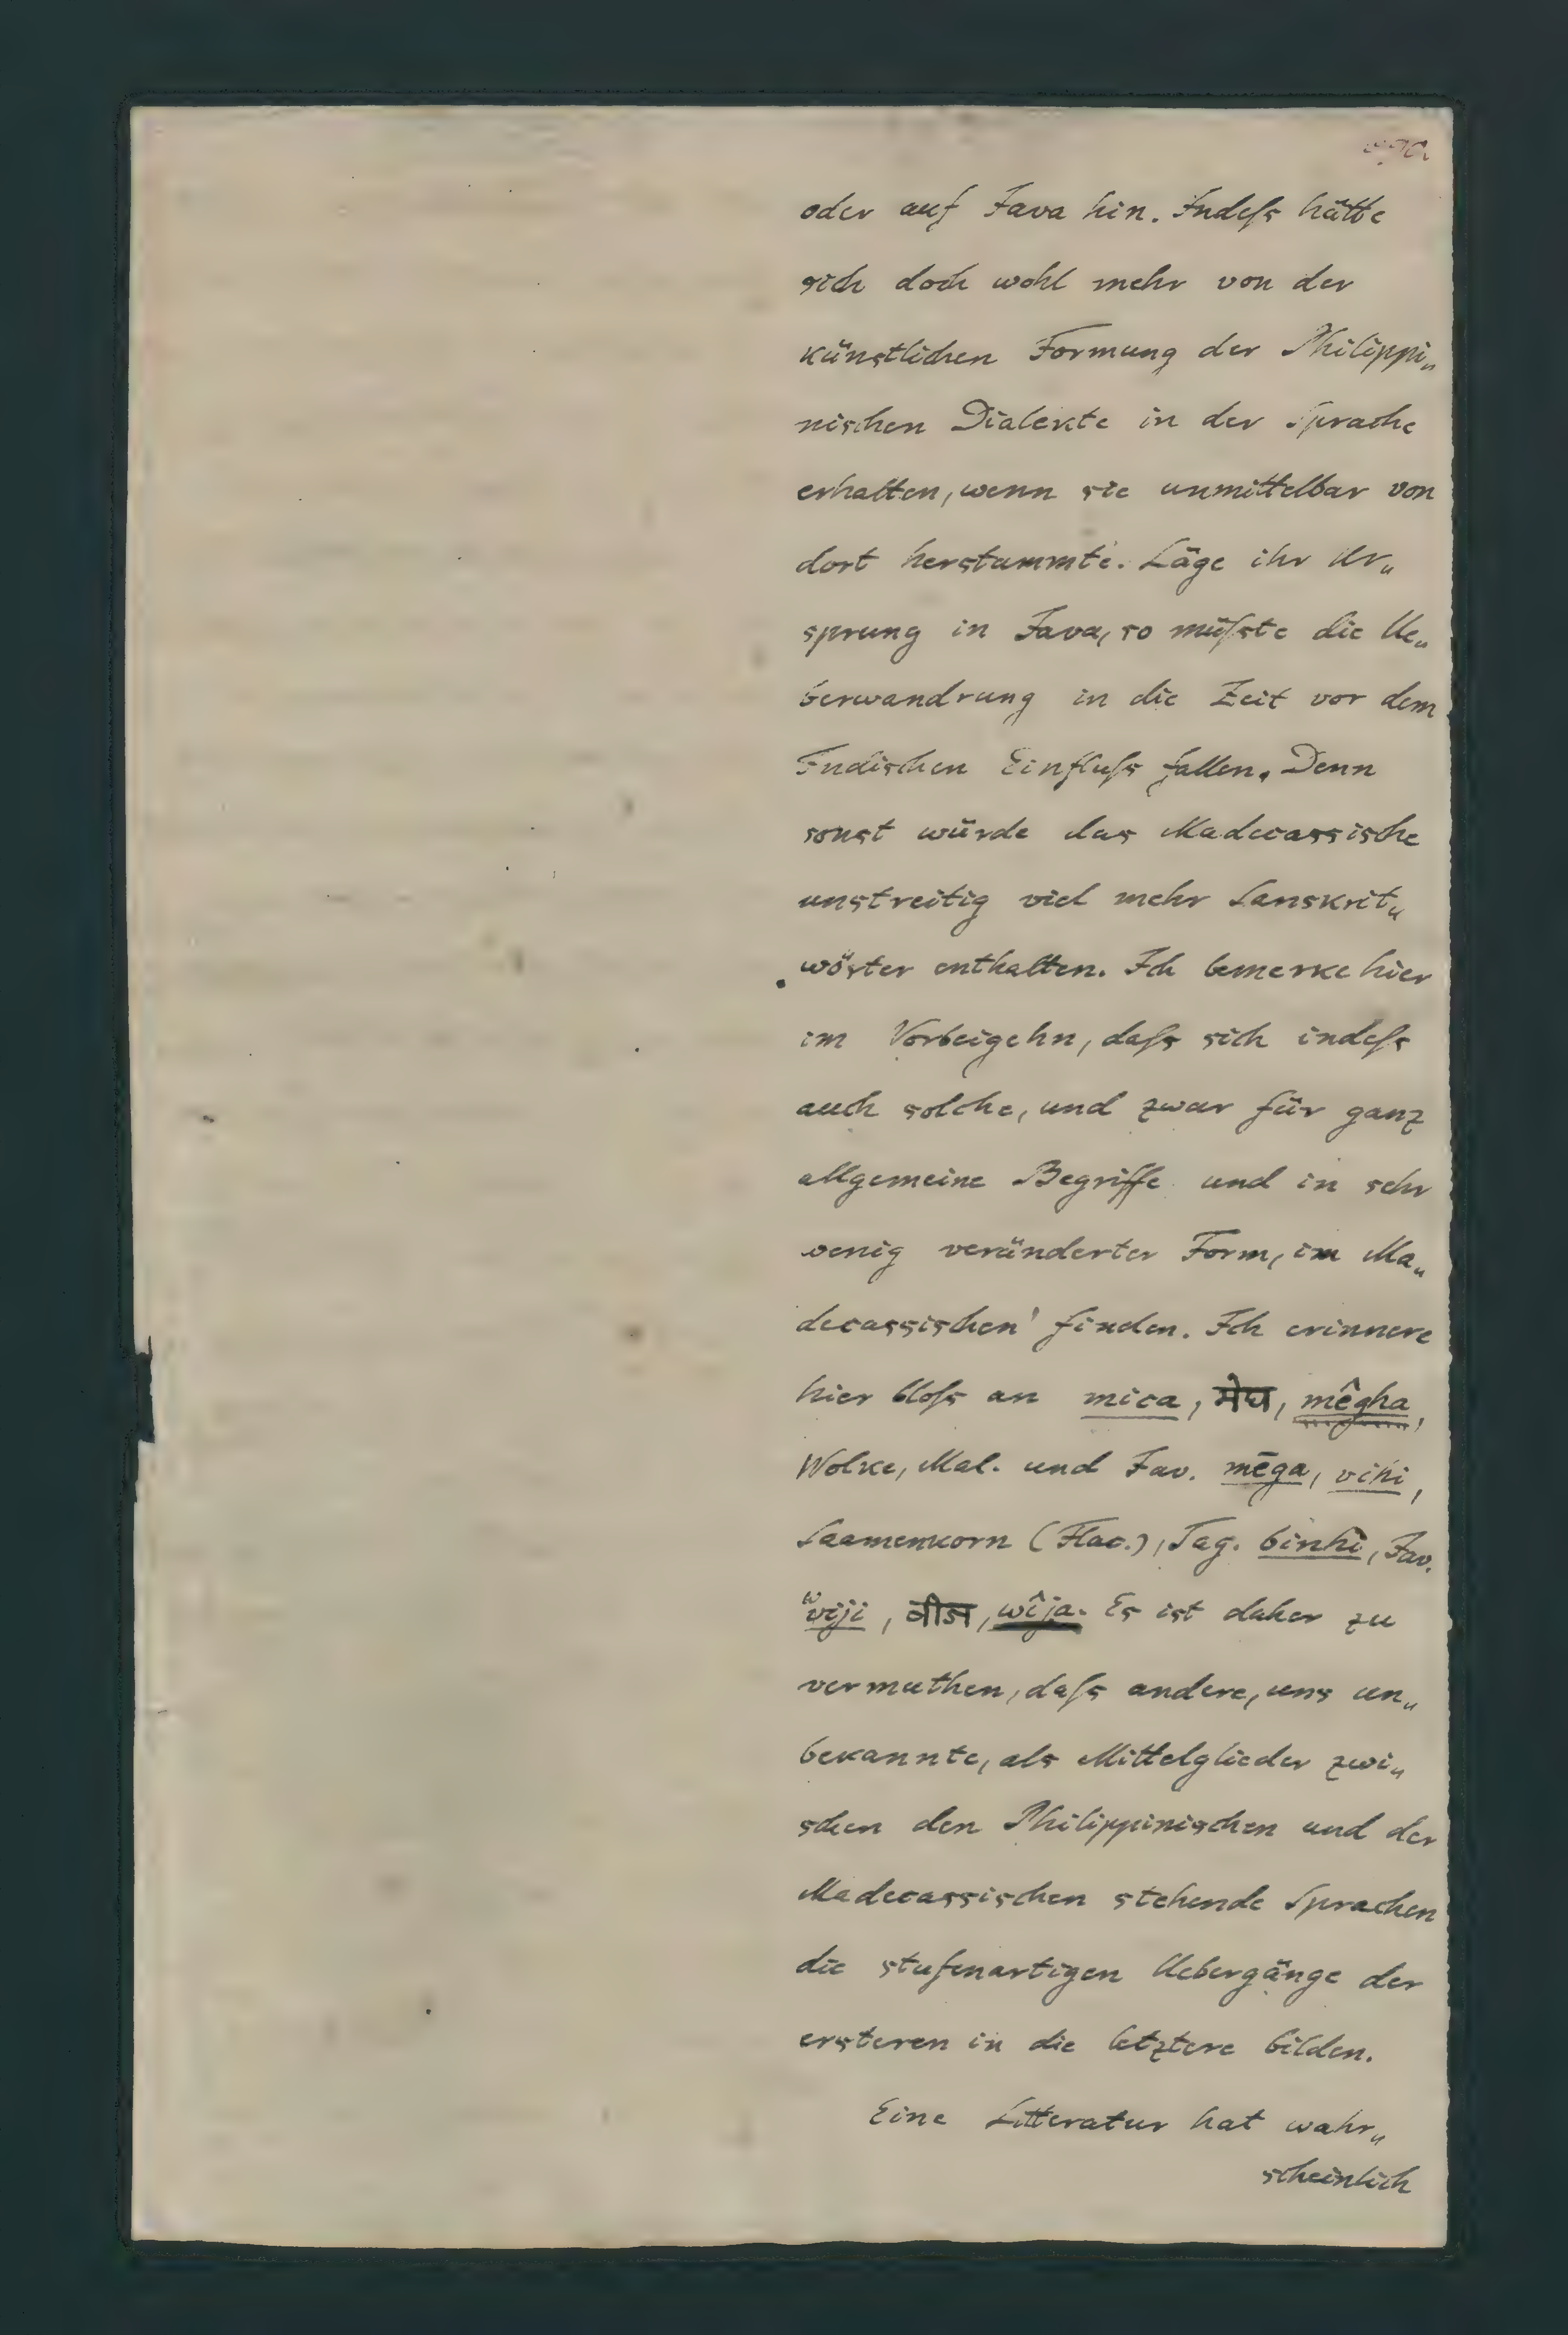 oder auf Java hin. Indeſs hätte
sich doch wohl mehr von der
künstlichen Formung der Philippi„
nischen Dialekte in der Sprache
erhalten, wenn sie unmittelbar von
dort herstammte. Läge ihr Ur„
sprung in Java, so müſste die Ue„
berwandrung in die Zeit vor dem
Indischen Einfluſs fallen. Denn
sonst würde das Madecassische
unstreitig viel mehr Sanskrit„
wörter enthalten. Ich bemerke hier
im Vorbeigehn, daſs sich indeſs
auch solche, und zwar für ganz
allgemeine Begriffe und in sehr
wenig veränderter Form, im Ma„
decassischen finden. Ich erinnere
hier bloſs an mica, मेघ, mêgha,
Wolke, Mal. und Jav. mēga, vihi,
Saamenkorn (Flac.), Tag. binhî, Jav.
wiji, वीज, wîja. Es ist daher zu
vermuthen, daſs andere, uns un„
bekannte, als Mittelglieder zwi„
schen den Philippinischen und der
Madecassischen stehende Sprachen
die stufenartigen Uebergänge der
ersteren in die letztere bilden.
Eine Litteratur hat wahr„
scheinlich